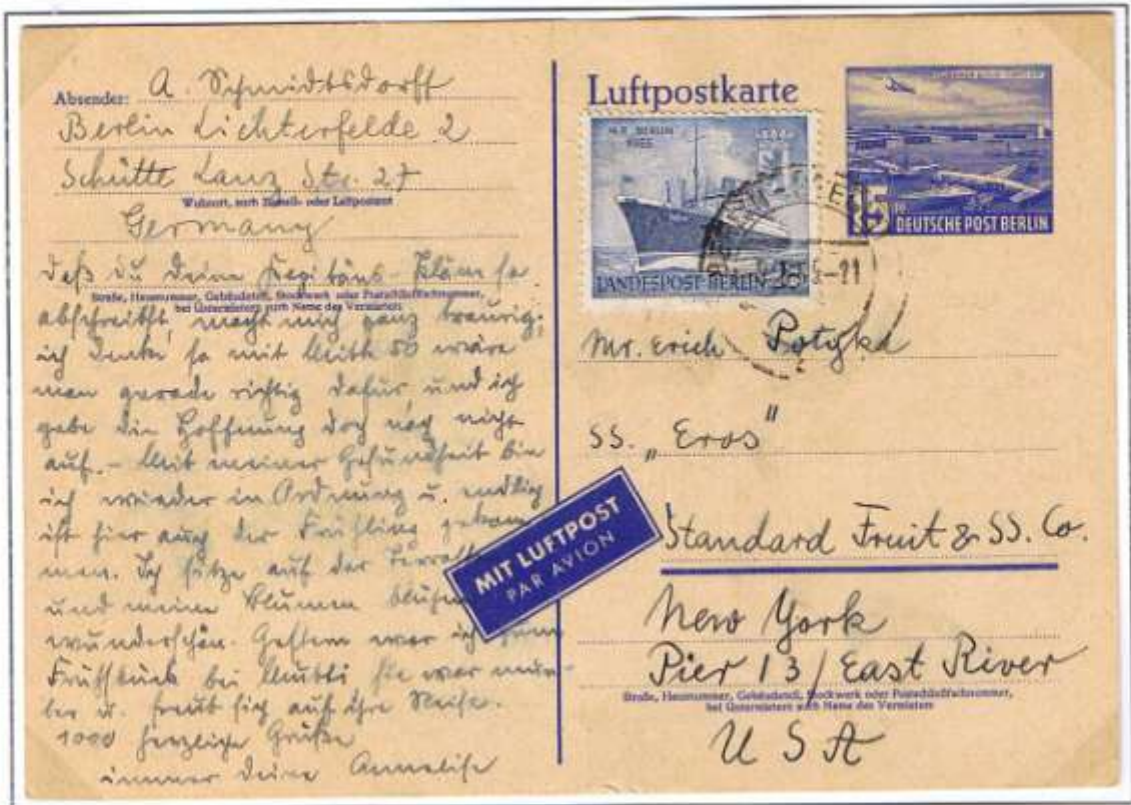 Absender: A. Schmidtsdorff
Berlin Lichterfelde 2
Schütte Lanz Str. 27
Wohnort, auch Zustell- oder Leitpostamt
Germany
daß du deine Kapitäns-Pläne so
Straße, Hausnummer, Gebäudeteil, Stockwerk oder Postschließfachnummer,
bei Untermietern auch Name des Vermieters
abschreibst, macht mich ganz traurig;
ich denke so mit Mitte 50 wäre
man gerade richtig dafür und ich
gebe die Hoffnung doch noch nicht
auf. – Mit meiner Gesundheit bin
ich wieder in Ordnung u. endlich
ist hier auch der Frühling gekom-
men. Ich sitze auf der
und meine Blumen blühen
wunderschön. Gestern war ich zum
Frühstück bei Mutti sie war mun-
ter u. freut sich auf ihre Reise.
1000 herzliche Grüße
immer deine Annelise
Luftpostkarte
M.S. BERLIN
1955
LANDESPOST BERLIN
15
DEUTSCHE POST BERLIN
Mr. Erich Potyka
SS. „Eros"
MIT LUFTPOST
PAR AVION
Standard Fruit & SS. Co.
New York
Pier 13 / East River
Straße, Hausnummer, Gebäudeteil, Stockwerk oder Postschließfachnummer,
bei Untermietern auch Name des Vermieters
USA